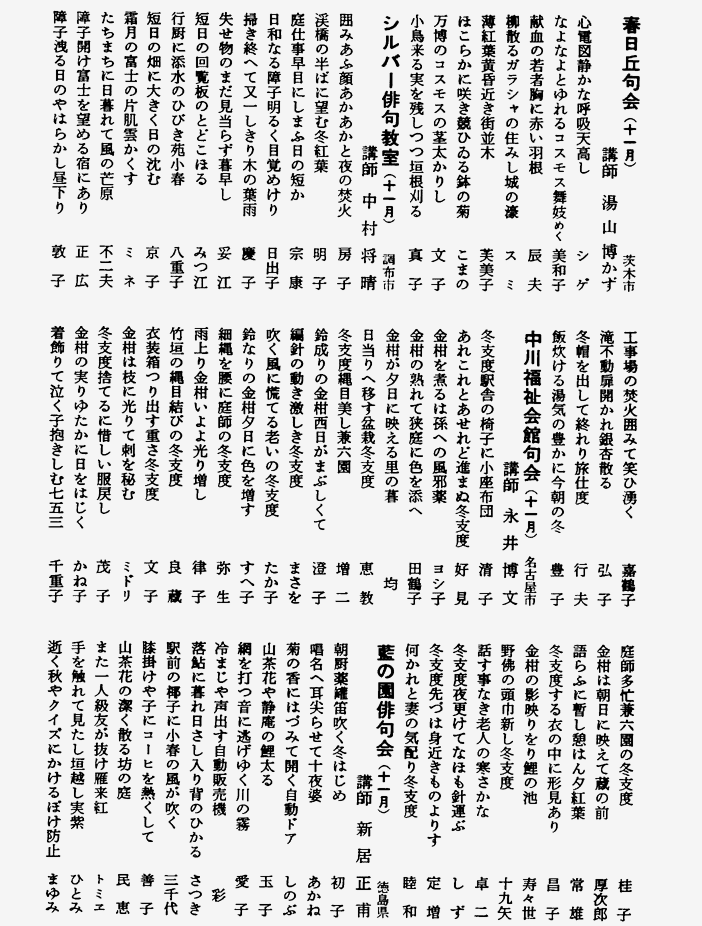 春日丘句会（十一月） 茨木市
講師 湯山 博かず
心電図静かな呼吸天高し シゲ
なよなよとゆれるコスモス舞妓めく 美和子
献血の若者胸に赤い羽根 辰夫
柳散るガラシャの住みし城の濠 スミ
薄紅葉黄昏近き街並木 芙美子
ほこらかに咲き競ひゐる鉢の菊 こまの
万博のコスモスの茎太かりし 文子
小鳥来る実を残しつつ垣根刈る 真子
シルバー俳句教室（十一月） 調布市
講師 中村 将晴
囲みあふ顔あかあかと夜の焚火 房子
渓橋の半ばに望む冬紅葉 明子
庭仕事早目にしまふ日の短か 宗康
日和なる障子明るく目覚めけり 日出子
掃き終へて又一しきり木の葉雨 慶子
失せ物のまだ見当らず暮早し 妥江
短日の回覧板のとどこほる みつ江
行厨に添水のひびき苑小春 八重子
短日の畑に大きく日の沈む 京子
霜月の富士の片肌雲かくす ミネ
たちまちに日暮れて風の芒原 不二夫
障子開け富士を望める宿にあり 正広
障子洩る日のやはらかし昼下り 敦子
工事場の焚火囲みて笑ひ湧く 嘉鶴子
滝不動扉開かれ銀杏散る 弘子
冬帽を出して終れり旅仕度 行夫
飯炊ける湯気の豊かに今朝の冬 豊子
中川福祉会館句会（十一月） 名古屋市
講師 永井 博文
冬支度駅舎の椅子に小座布団 清子
あれこれとあせれど進まぬ冬支度 好見
金柑を煮るは孫への風邪薬 ヨシ子
金柑の熟れて狭庭に色を添へ 田鶴子
金柑が夕日に映える里の暮 均
日当りへ移す盆栽冬支度 恵教
冬支度縄目美し兼六園 増二
鈴成りの金柑西日がまぶしくて 澄子
編針の動き激しき冬支度 まさを
吹く風に慌てる老いの冬支度 たか子
鈴なりの金柑夕日に色を増す すへ子
細縄を腰に庭師の冬支度 弥生
雨上り金柑いよよ光り増し 律子
竹垣の縄目結びの冬支度 良蔵
衣装箱つり出す重さ冬支度 文子
金柑は枝に光りて刺を秘む ミドリ
冬支度捨てるに惜しい服戻し 茂子
金柑の実りゆたかに日をはじく かね子
着飾りて泣く子抱きしむ七五三 千重子
庭師多忙兼六園の冬支度 桂子
金柑は朝日に映えて蔵の前 厚次郎
語らふに暫し憩はん夕紅葉 常雄
冬支度する衣の中に形見あり 昌子
金柑の影映りをり鯉の池 寿々世
野佛の頭巾新し冬支度 十九矢
話す事なき老人の寒さかな 卓二
冬支度夜更けてなほも針運ぶ しず
冬支度先づは身近きものよりす 定増
何かれと妻の気配り冬支度 睦和
藍の園俳句会（十一月） 徳島県
講師 新居 正甫
朝厨薬罐笛吹く冬はじめ 初子
唱名へ耳尖らせて十夜婆 あかね
菊の香にはづみて開く自動ドア しのぶ
山茶花や静庵の鯉太る 玉子
網を打つ音に逃げゆく川の霧 愛子
冷まじや声出す自動販売機 彩
落鮎に暮れ日さし入り背のひかる さつき
駅前の椰子に小春の風が吹く 三千代
膝掛けや子にコーヒを熱くして 善子
山茶花の潔く散る坊の庭 民恵
また一人級友が抜け雁来紅 トミヱ
手を触れて見たし垣越し実紫 ひとみ
逝く秋やクイズにかけるぼけ防止 まゆみ